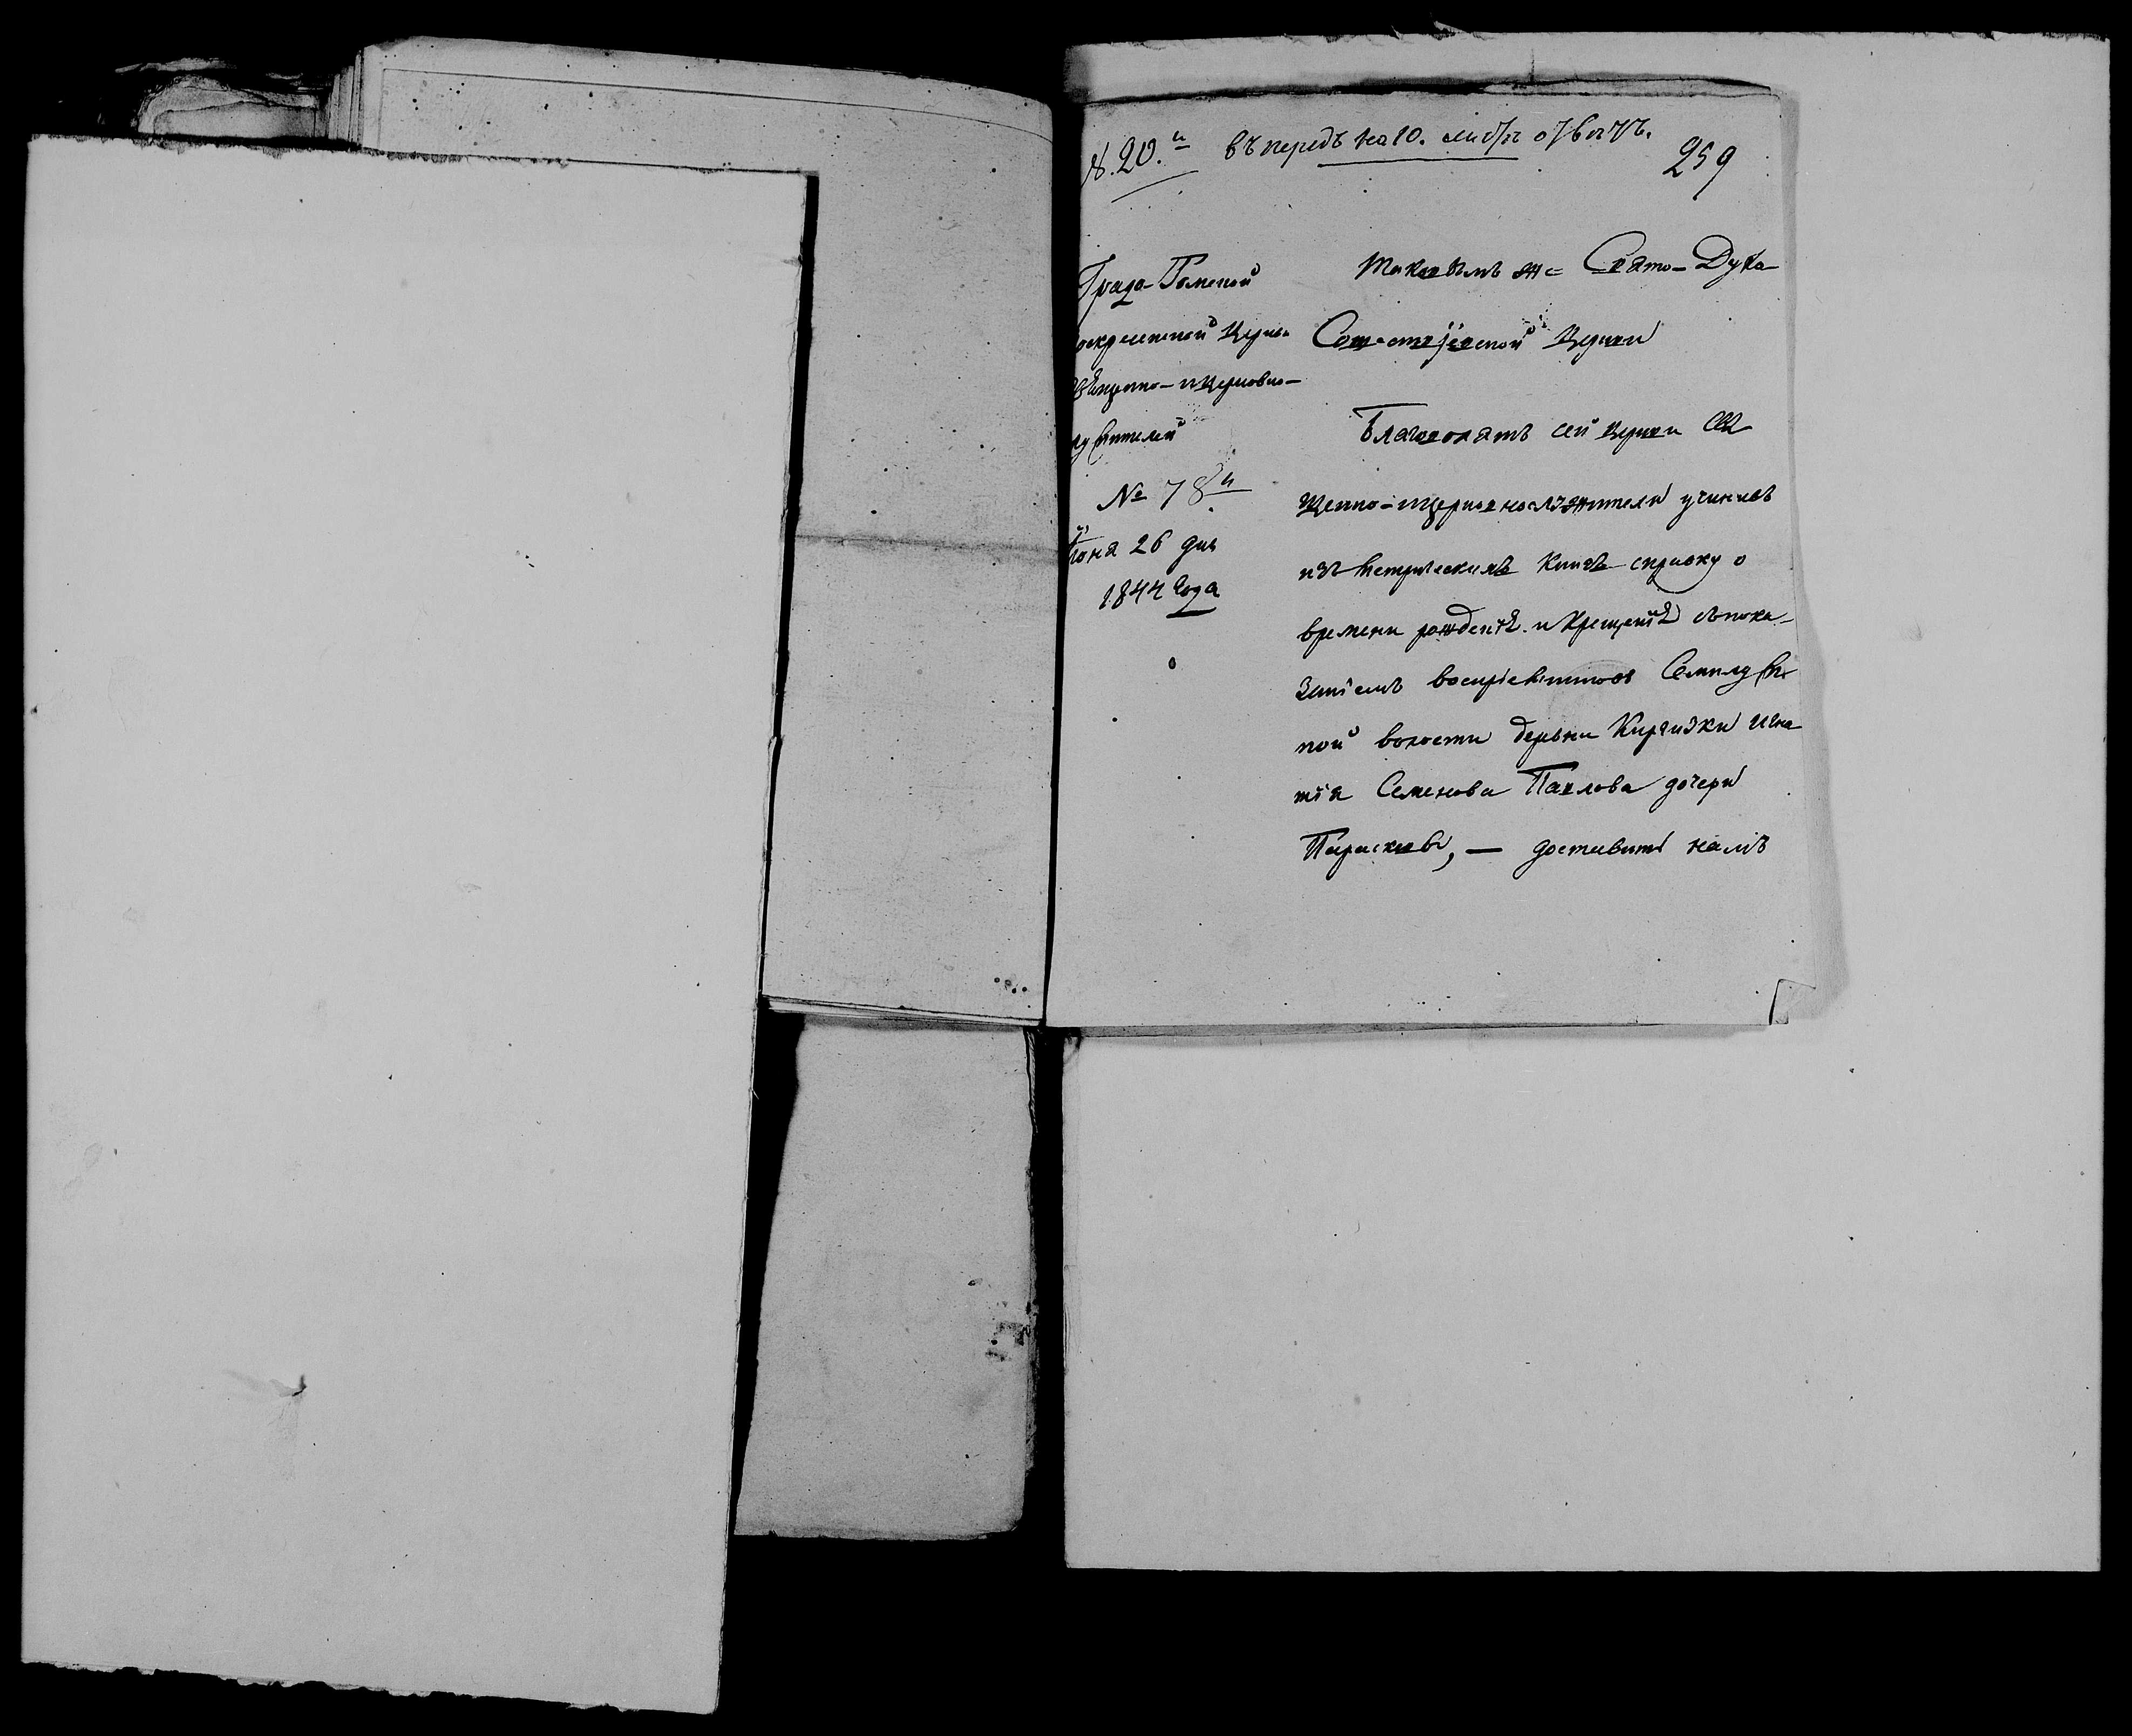 № 20.й въ передъ на 10. листѣ отвѣтъ.
259
Градо-Томской
оскресенской Церкви
Священно-и церковно-
служителей
№ 78й
Іюня 26 дня
1844 года
Таковымъ же Свято-Духо-
Сошественской Церкви
Благоволятъ сей Церкви Свя
щенно-и церковнослужители учинивъ
изъ метрическихъ книгъ справку о
времени рожденія и Крещенія съ пока-
заніемъ воспріемниковъ Семилуж
ной волости деревни Киргизки Игна
тія Семенова Павлова дочери
Парасковьи, — доставить намъ